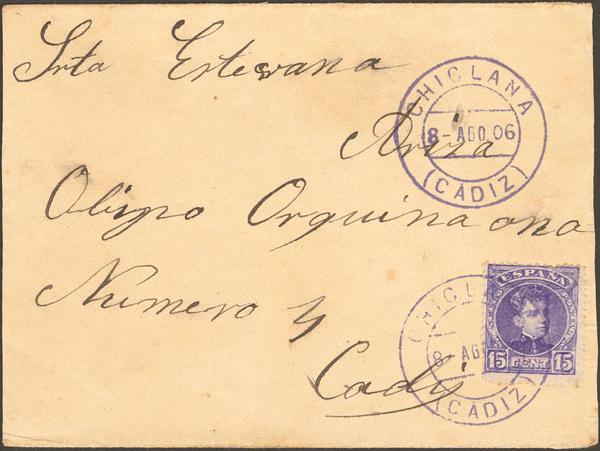 Srta Estevana
Ariza
Obispo Orquinaona
Numero 4
Cadiz
CHICLANA
8-AGO.06
(CADIZ)
ESPAÑA
15 CENT 15
CHICL
8 AG
(CADIZ)